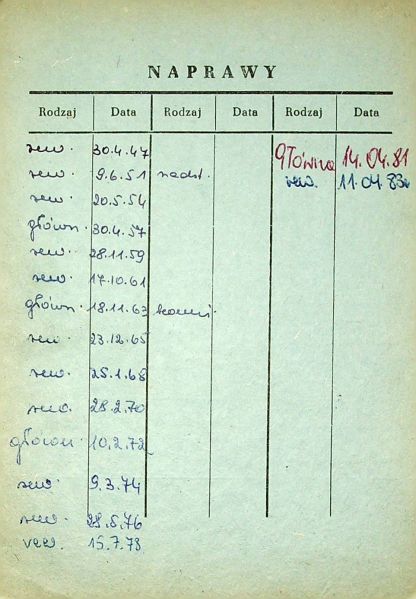 NAPRAWY
Rodzaj Data Rodzaj Data Rodzaj Data
rew. 30.4.47 Główna 14.04.81
rew. 9.6.51 nadst. rew. 11.04.83
rew. 20.5.54
główn. 30.4.57
rew. 28.11.59
rew. 17.10.61
główn. 18.11.63
rew. 23.12.65
rew. 25.1.68
rew. 28.2.70
główn. 10.2.72
rew. 9.3.74
rew. 28.5.76
rew. 15.7.78